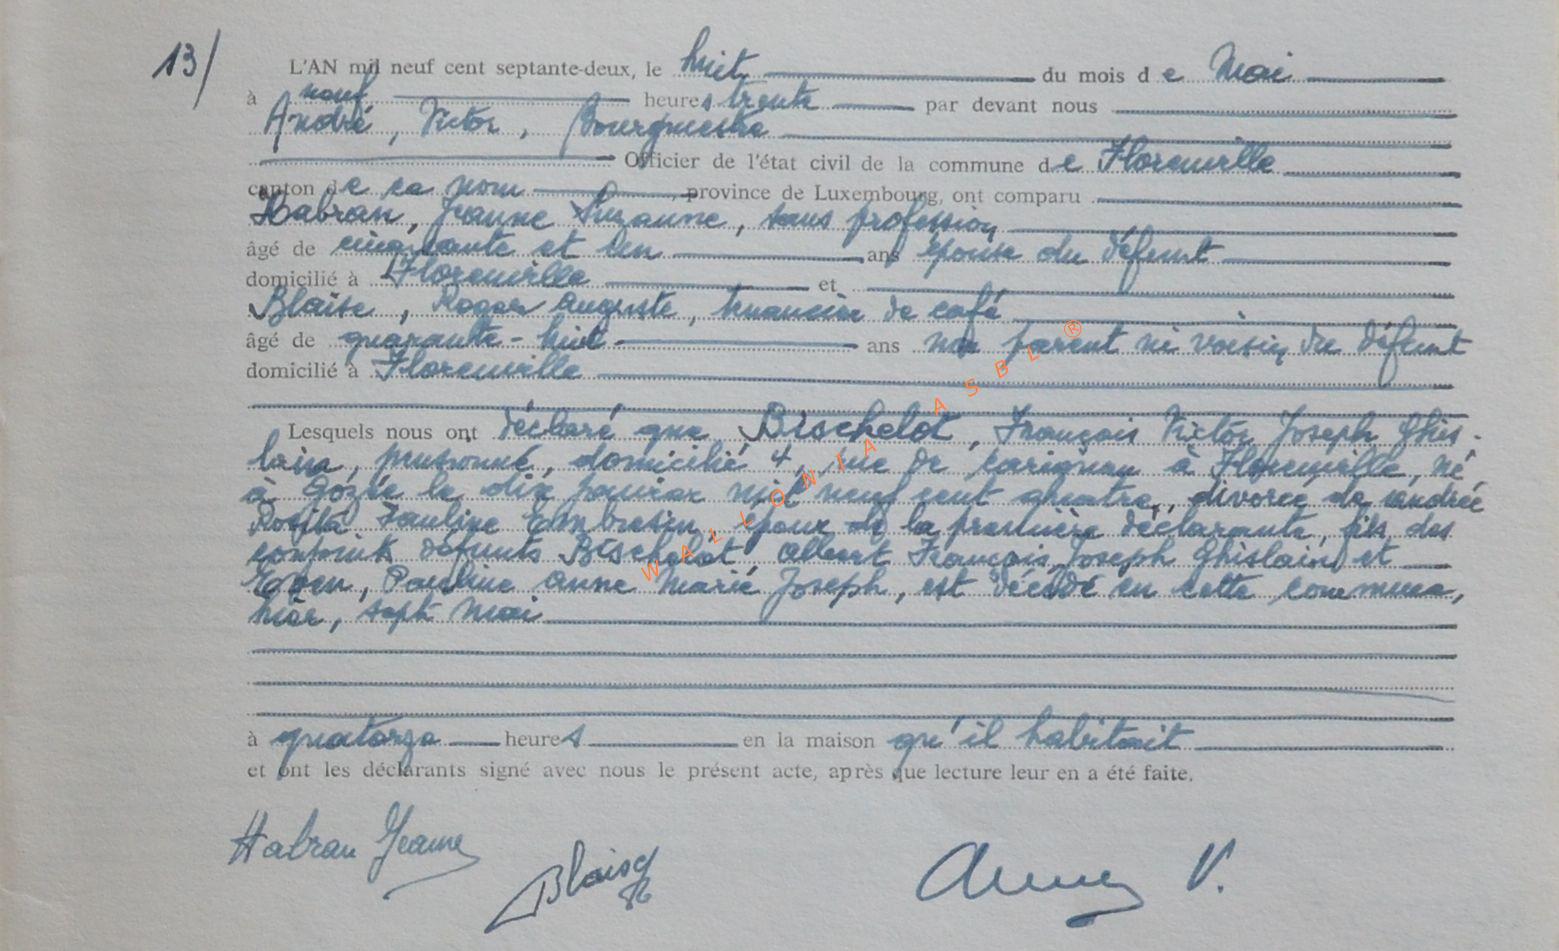 13/
L'AN mil neuf cent septante-deux, le huit du mois de Mai
à neuf heures trente par devant nous
André, Victor, Bourgmestre
Officier de l'état civil de la commune de Florenville
canton de ce nom, province de Luxembourg, ont comparu
Habran, Jeanne Suzanne, sans profession
âgé de cinquante et un ans épouse du défunt
domicilié à Florenville et
Blaise, Roger Auguste, tenancier de café
âgé de quarante-huit ans non parent ni voisin du défunt
domicilié à Florenville
Lesquels nous ont déclaré que Bischelot, François Victor Joseph Ghis-
lain, pensionné, domicilié 4, rue de Carignan à Florenville, né
à Gozée le dix janvier mil neuf cent quatre, divorcé de Andrée
Rosita Pauline, époux de la première déclarante, fils des
conjoints défunts Bischelot, Albert François Joseph Ghislain et
Pauline Anne Marie Joseph, est décédé en cette commune,
hier, sept mai
à quatorze heures en la maison qu'il habitait
et ont les déclarants signé avec nous le présent acte, après que lecture leur en a été faite.
Habran Jeanne
Blaise
V.
WALLONIA ASBL ®